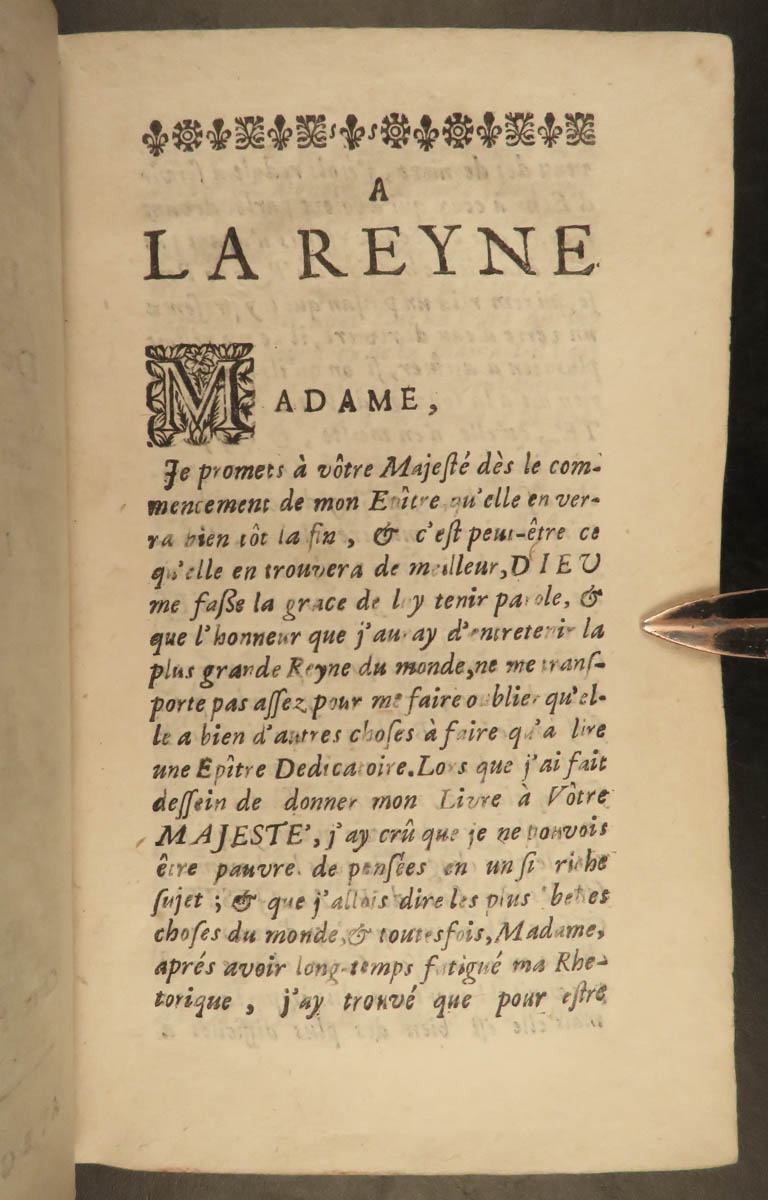 A
LA REYNE
MADAME,
Je promets à vôtre Majeſté dès le com-
mencement de mon Epître qu'elle en ver-
ra bien tôt la fin, & c'eſt peut-être ce
qu'elle en trouvera de meilleur, DIEU
me faſſe la grace de luy tenir parole, &
que l'honneur que j'auray d'entretenir la
plus grande Reyne du monde, ne me tranſ-
porte pas aſſez pour me faire oublier qu'el-
le a bien d'autres choſes à faire qu'a lire
une Epître Dedicatoire. Lors que j'ai fait
deſſein de donner mon Livre à Vôtre
MAJESTE', j'ay crû que je ne pouvois
être pauvre de penſées en un ſi riche
ſujet ; & que j'allois dire les plus belles
choſes du monde, & toutesfois, Madame,
aprés avoir long-temps fatigué ma Rhe-
torique, j'ay trouvé que pour eſtre